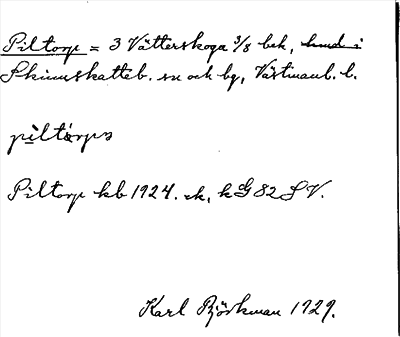 Piltorp = 3 Vätterskoga 3/8 bek, hmd i
Skinnskatteb. sn och bg, Västmanl. l.
pìltårpə
Piltorp kb 1924. ek, kG 82 SV.
Karl Björkman 1929.